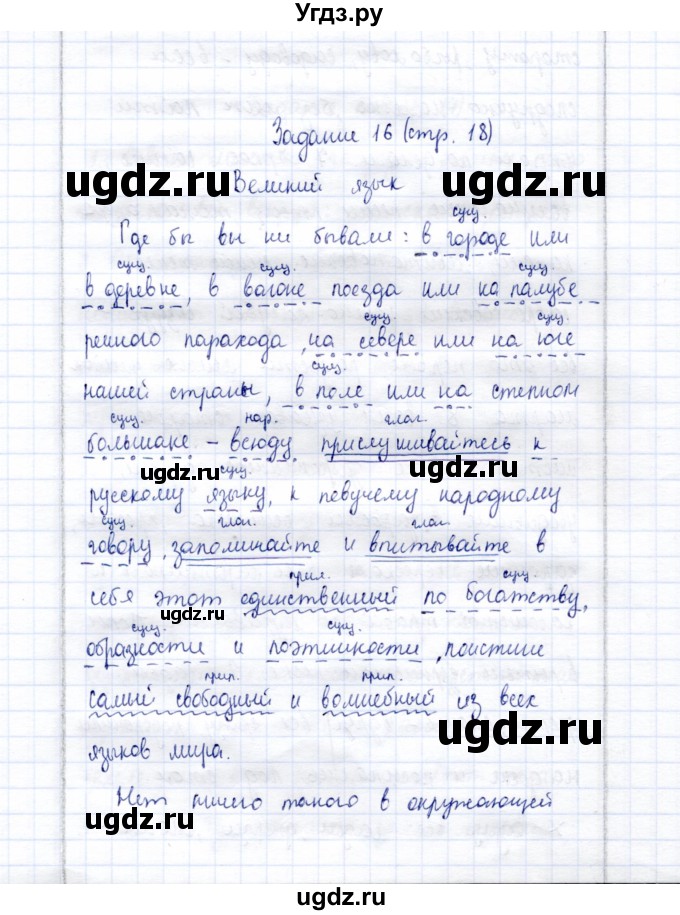 Угдз.ру
Задание 16 (стр. 18)
ugdz.ru ugdz.ru
Великий язык
сущ.
Где бы вы ни бывали: в городе или
сущ. сущ. сущ.
в деревне, в вагоне поезда или на палубе
сущ. сущ.
речного парахода, на севере или на юге
сущ.
нашей страны, в поле или на степном
сущ. нар. глаг.
большаке – всюду прислушивайтесь к
ugdz.ru ugdz.ru
сущ.
русскому языку, к певучему народному
сущ. глаг. глаг.
говору, запоминайте и впитывайте в
прил. сущ.
себя этот единственный по богатству,
ugdz.ru
сущ. сущ.
образности и поэтичности, поистине
прил. прил.
самый свободный и волшебный из всех
ugdz.ru
языков мира.
Нет ничего такого в окружающей
ugdz.ru
ugdz.ru